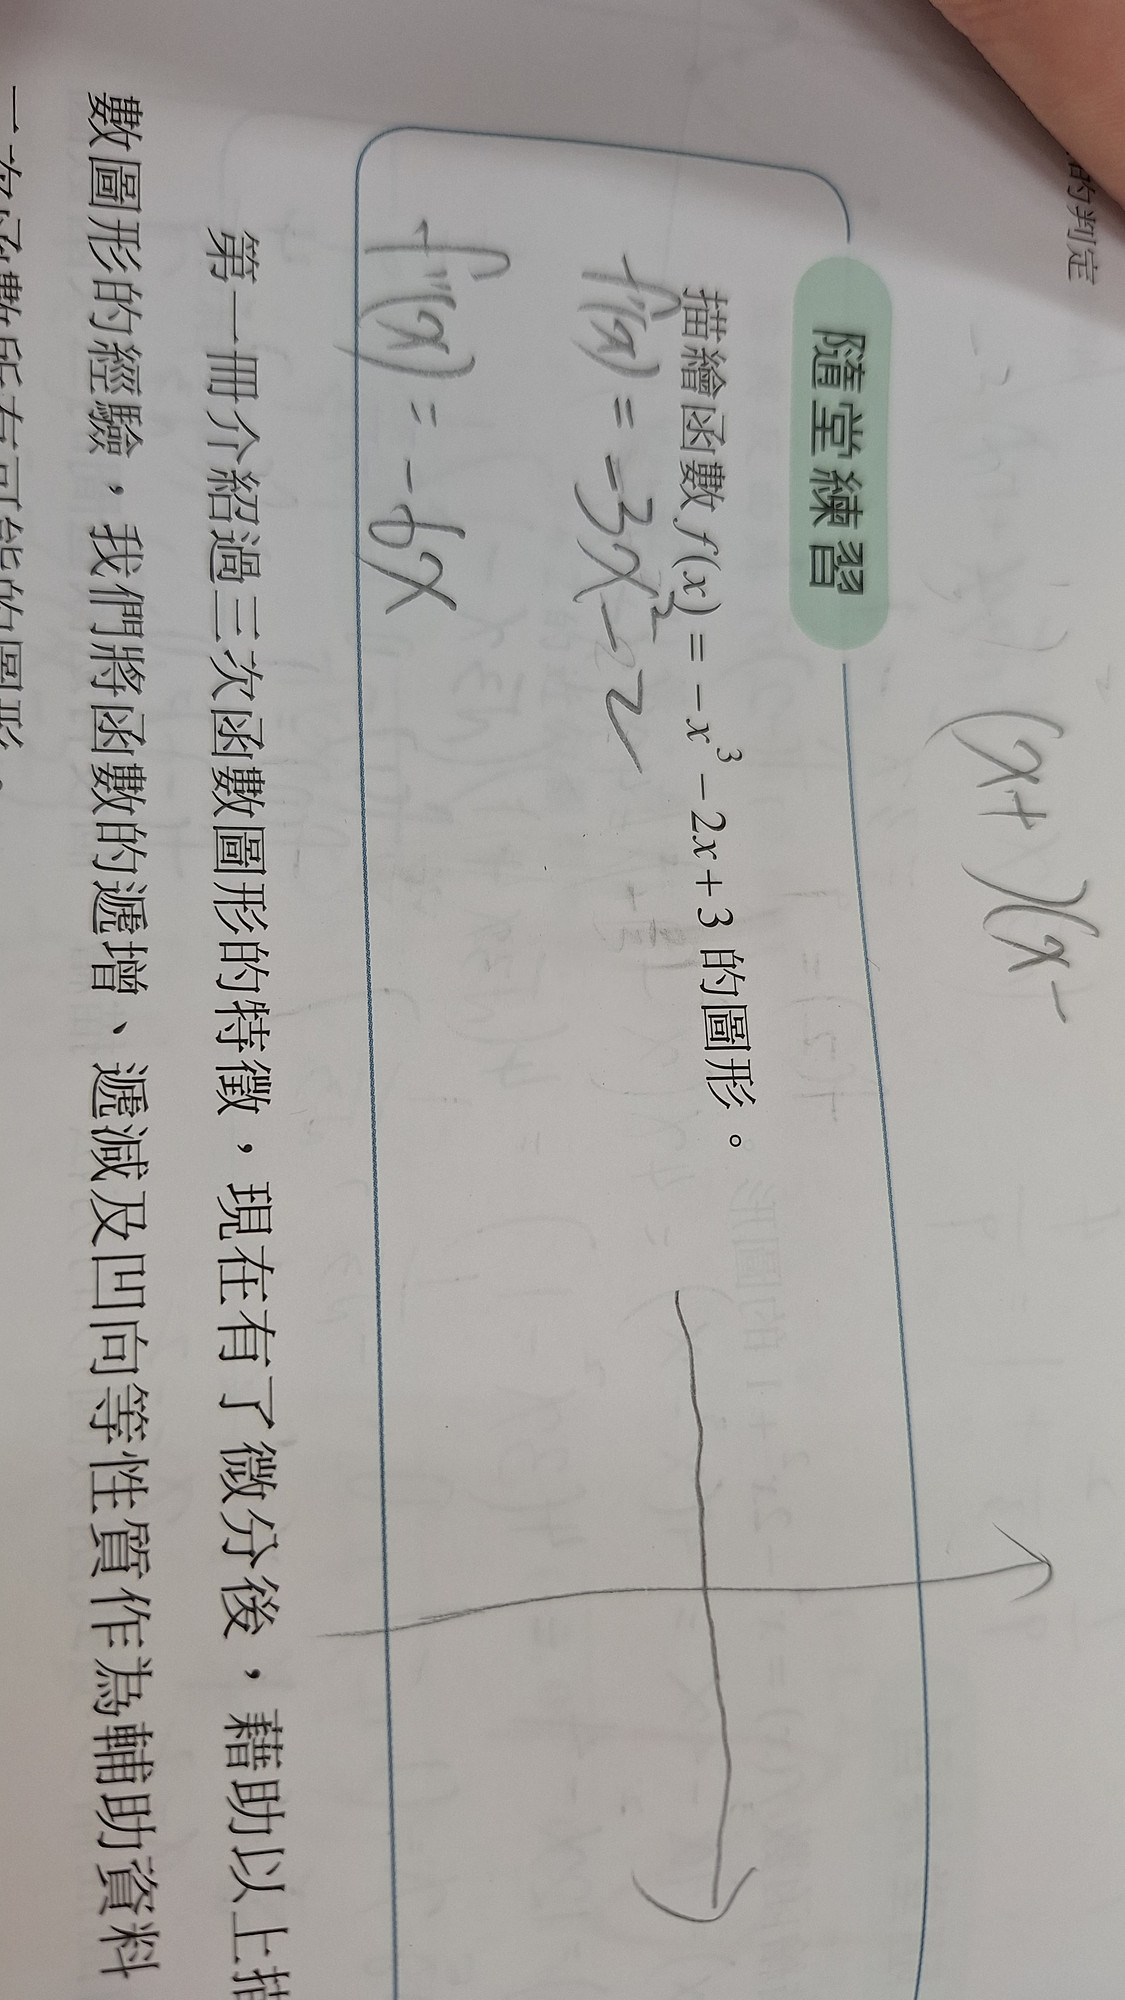 的判定
(x+ )(x-
隨堂練習
描繪函數 f(x) = -x³ - 2x + 3 的圖形。
f'(x) = -3x²-2
f''(x) = -6x
第一冊介紹過三次函數圖形的特徵，現在有了微分後，藉助以上描
數圖形的經驗，我們將函數的遞增、遞減及凹向等性質作為輔助資料
一次函數所有可能的圖形。